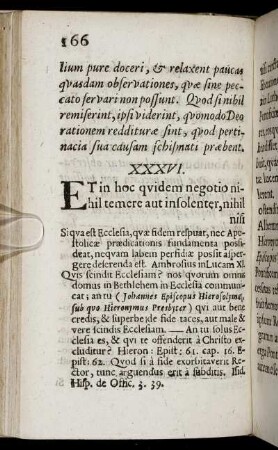 166
lium pure doceri, & relaxent paucas
qvasdam observationes, qvæ sine pec-
cato servari non possunt. Qvod si nihil
remiserint, ipsi viderint, qvomodo Deo
rationem reddituræ sint, qvod perti-
nacia sua causam schismati præbent.
XXXVI.
ET in hoc qvidem negotio ni-
hil temere aut insolenter, nihil
nisi
Si qva est Ecclesia, qvæ fidem respuat, nec Apo-
stolicæ prædicationis fundamenta possi-
deat, neqvam labem perfidiæ possit asper-
gere deserenda est. Ambrosius in Lucam XI.
Qvis scindit Ecclesiam? nos qvorum omnis
domus in Bethlehem in Ecclesia communi-
cat; an tu (Johannes Episcopus Hierosolymæ,
sub qvo Hieronymus Presbyter) qvi aut bene
credis, & superbe de fide taces, aut male &
vere scindis Ecclesiam. — An tu solus Ec-
clesia es, & qvi te offenderit à Christo ex-
cluditur? Hieron: Epist: 61. cap. 16. E-
pist: 62. Qvod si à fide exorbitaverit Re-
ctor, tunc arguendus erit à subditis. Isid.
Hisp. de Offic. 3. 39.